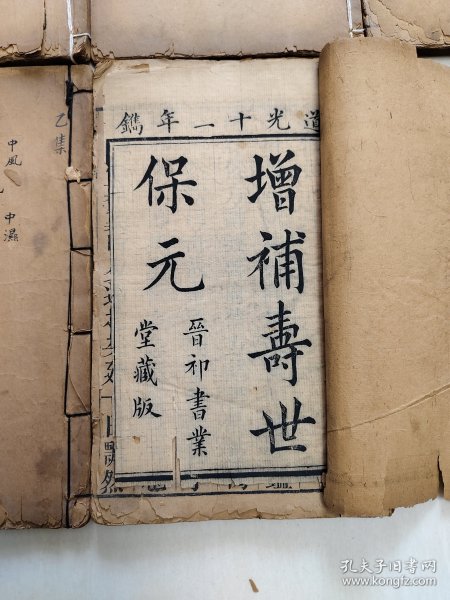 道光十一年鐫
增補壽世
保元
晉祁書業
堂藏版
乙集
中風
中濕
孔夫子旧书网
www.kongfz.com